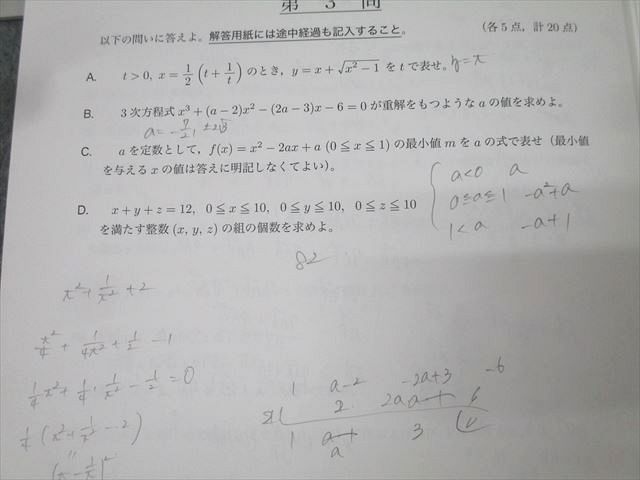 第 3 問
以下の問いに答えよ。解答用紙には途中経過も記入すること。 (各5点，計20点)
A. t>0, x=1/2(t+1/t)のとき，y=x+√(x²−1) を t で表せ。
B. 3次方程式 x³+(a−2)x²−(2a−3)x−6=0 が重解をもつような a の値を求めよ。
a=−7/2, ±2√3
C. a を定数として，f(x)=x²−2ax+a (0≦x≦1) の最小値 m を a の式で表せ（最小値
を与える x の値は答えに明記しなくてよい）。
a<0 a
0≦a≦1 −a²+a
1<a −a+1
D. x+y+z=12, 0≦x≦10, 0≦y≦10, 0≦z≦10
を満たす整数 (x, y, z) の組の個数を求めよ。
82
x²+1/x²+2
x²/4+1/4x²+1/2−1
1/4x²+1/4·1/x²−1/2=0
1/4(x²+1/x²−2)
1 a−2 −2a+3 −6
2 2a 6
1 a 3